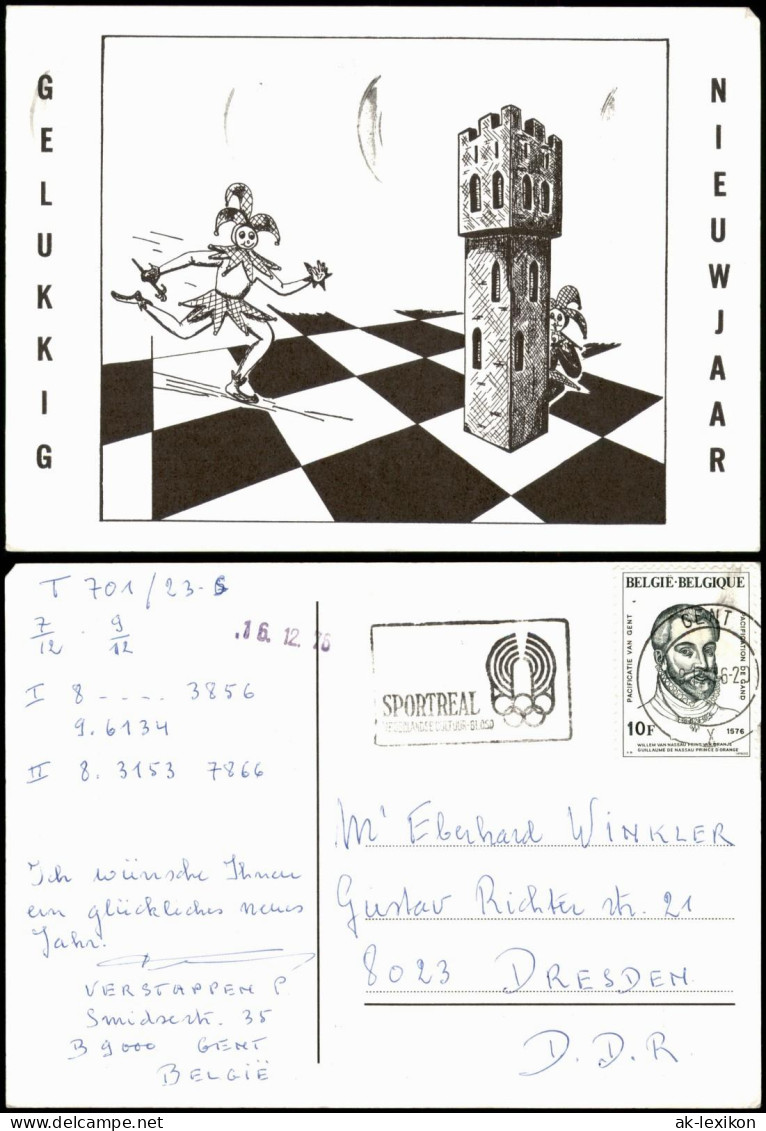 GELUKKIG
NIEUWJAAR
T 701/23-6
7/12 . 9/12
.16.12.76
I 8 - . . . . 3856
9.6134
II 8. 3153 7866
Ich wünsche Ihnen
ein glückliches neues
Jahr.
VERSTAPPEN P.
Smidsestr. 35
B 9000 GENT
BELGIË
SPORTREAL
BELGIË·BELGIQUE
PACIFICATIE VAN GENT
PACIFICATION DE GAND
10F
1576
WILLEM VAN NASSAU PRINS VAN ORANJE
GUILLAUME DE NASSAU PRINCE D'ORANGE
GENT
Mr Eberhard WINKLER
Gustav Richter str. 21
8023 DRESDEN
D.D.R.
ak-lexikon